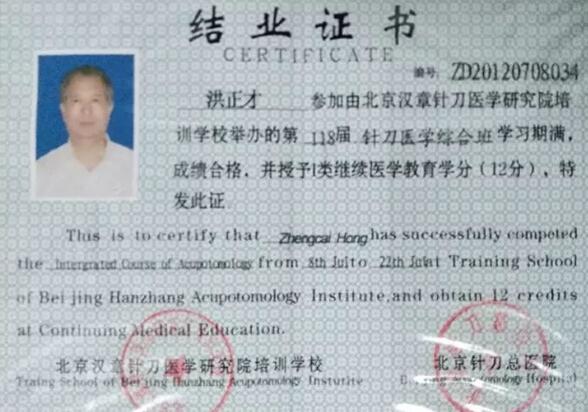 结业证书
CERTIFICATE
编号: ZD20120708034
洪正才 参加由北京汉章针刀医学研究院培
训学校举办的第 118届 针刀医学综合班 学习期满,
成绩合格，并授予I类继续医学教育学分（12分），特
发此证
This is to certify that Zhengcai Hong has successfully competed
the Intergrated Course of Acupotomology from 8th Jul to 22th Jul at Training School
of Bei jing Hanzhang Acupotomology Institute, and obtain 12 credits
at Continuing Medical Education.
北京汉章针刀医学研究院培训学校 北京针刀总医院
Traing School of Bei jing Hanzhang Acupotomology Insturite Acupotomology Hospital